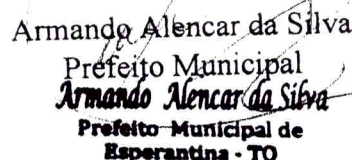 Armando Alencar da Silva
Prefeito Municipal
Armando Alencar da Silva
Prefeito Municipal de
Esperantina - TO